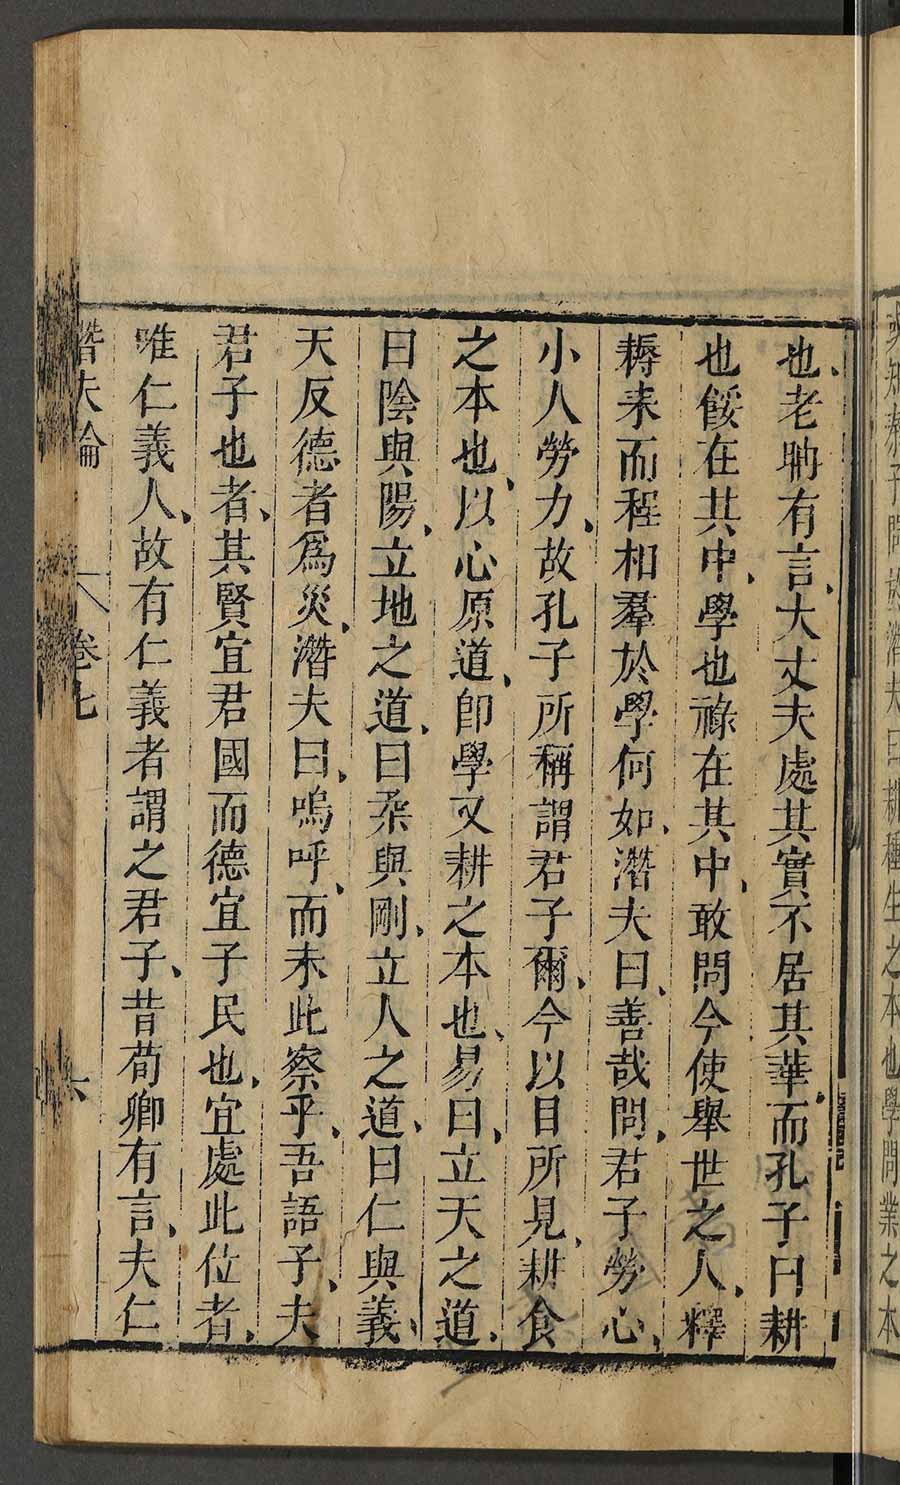 子問於潛夫曰耕種生之本也學問業之本
也、老聃有言、大丈夫處其實不居其華、而孔子曰耕
也餒在其中、學也祿在其中、敢問今使舉世之人、釋
耨耒而程相羣於學何如、潛夫曰、善哉問、君子勞心、
小人勞力、故孔子所稱謂君子爾、今以目所見、耕食
之本也、以心原道、卽學又耕之本也、易曰、立天之道、
曰陰與陽、立地之道、曰柔與剛、立人之道、曰仁與義、
天反德者爲災、潛夫曰、嗚呼、而未此察乎、吾語子、夫
君子也者、其賢宜君國而德宜子民也、宜處此位者、
唯仁義人、故有仁義者謂之君子、昔荀卿有言、夫仁
潛夫論 卷七 六